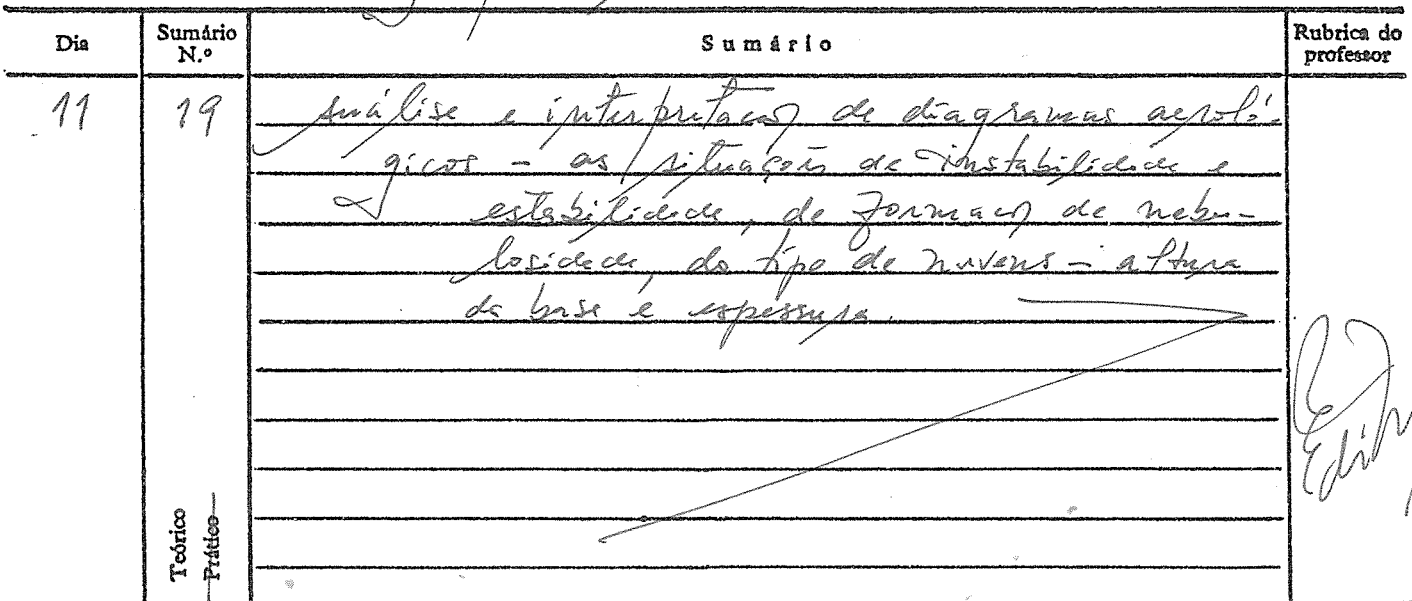 Dia Sumário N.º Sumário Rubrica do professor
11 19 Análise e interpretação de diagramas aeroló-
gicos - as situações de instabilidade e
estabilidade, de formação de nebu-
losidade, do tipo de nuvens - altura
da base e espessura.
Teórico
Prático